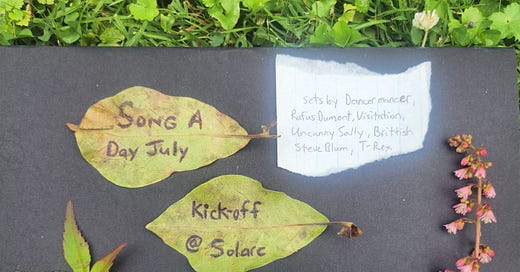 SONG A
Day July
sets by Dancermancer,
Rufus Dumont, Visitation,
Uncanny Sally, Brittish
Steve Blum, T-Rex
Kick-off
@ Solarc